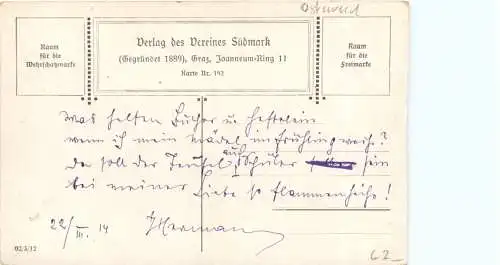 Ostmark
Raum
für die
Wehrschatzmarke
Verlag des Vereines Südmark
(Gegründet 1889), Graz, Joanneum-Ring 11
Karte Nr. 192
Raum
für die
Freimarke
Was helfen Bücher u. Heftelein
wenn ich mein Mädel im Frühling weiss?
da soll der Teufel auch Schüler sein
bei meiner Liebe so flammenheiss!
22/III. 14 Hermann
02/3/12
62-